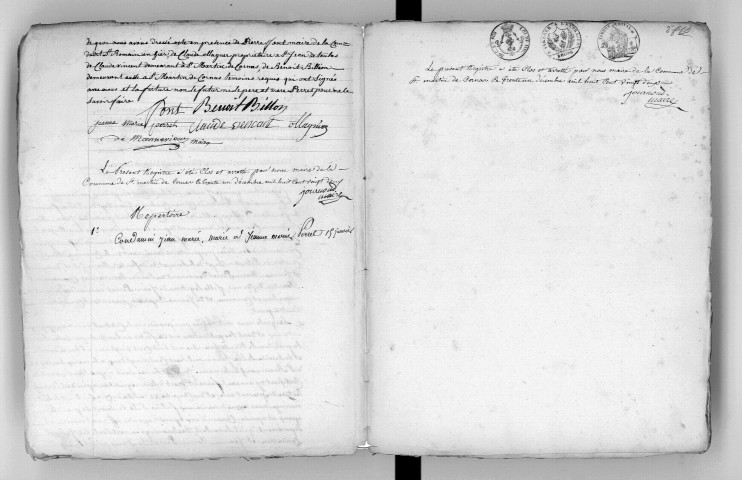 de quoi nous avons dressé acte en presence de Pierre Font maire de la Com
de St Romain en Gier de Claude ollagnier propriétaire a St Jean de toulas
de Claude demeurant a St Martin de Cornas de Benoit Billon
demeurant aussi a St Martin de Cornas temoins requis qui ont signés
avec nous et la future non le futur ni le pere et mere Perret pour ne le
savoir faire
font Benoit Billon
jeanne Marie perret Claude ollagnier
maire
Le Present Registre a été Clos et arretté par nous maire de la
Commune de St martin de Cornas le trente un décembre mil huit Cent vingt deux
maire
Repertoire
1° Condamin jean marie, marié a Jeanne marie Perret 15 janvier
Le présent Registre a été Clos et arretté par nous maire de la Commune de
St martin de Cornas le trente un décembre mil huit Cent vingt deux
maire